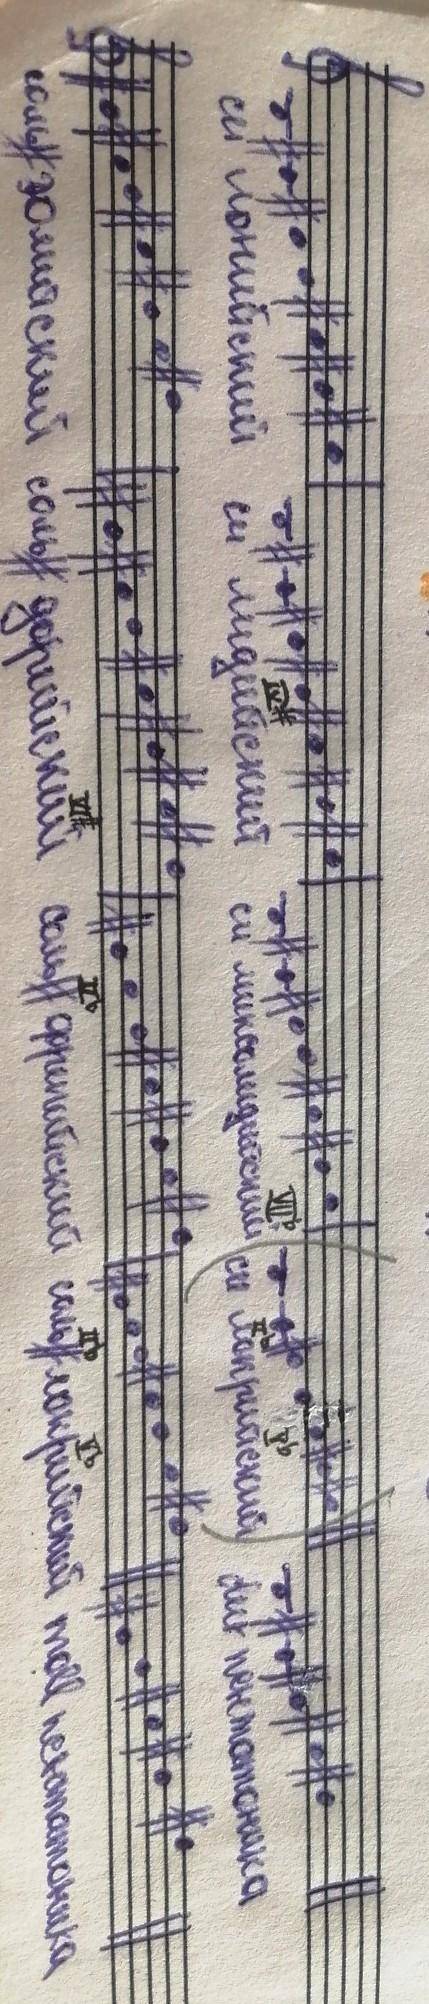 си ионийский си лидийский IV# си миксолидийский VII♭ си локрийский II♭ V♭ dur пентатоника
соль# эолийский соль# дорийский VI# соль# фригийский II♭ соль# локрийский II♭ V♭ moll пентатоника